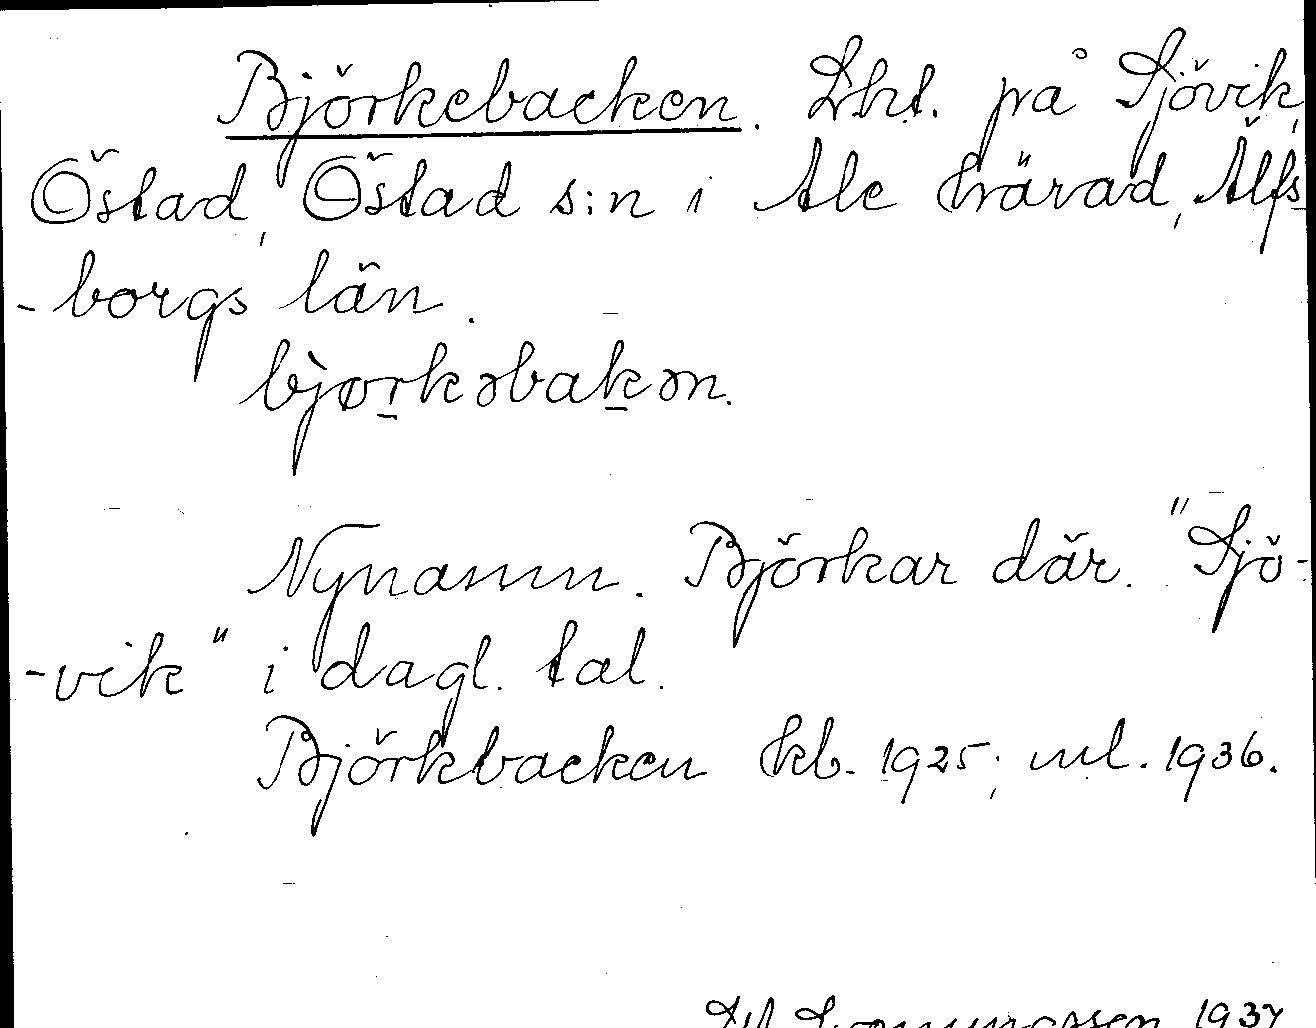 Björkebacken. Lht. på Sjövik,
Östad, Östad s:n i Ale härad, Älfs
-borgs län.
bjørkəbakən.
Nynamn. Björkar där. "Sjö-
-vik" i dagl. tal.
Björkbacken kb. 1925; ml. 1936.
1937